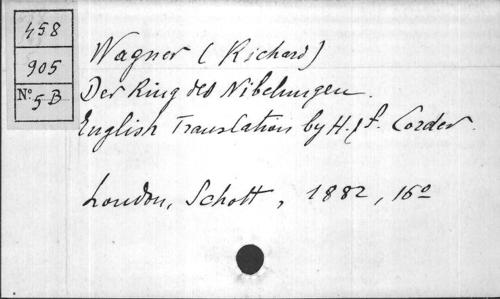 458
905
N° 5-B
Wagner (Richard)
Der Ring des Nibelungen.
English Translation by H. & F. Corder.
London, Schott, 1882, 16°